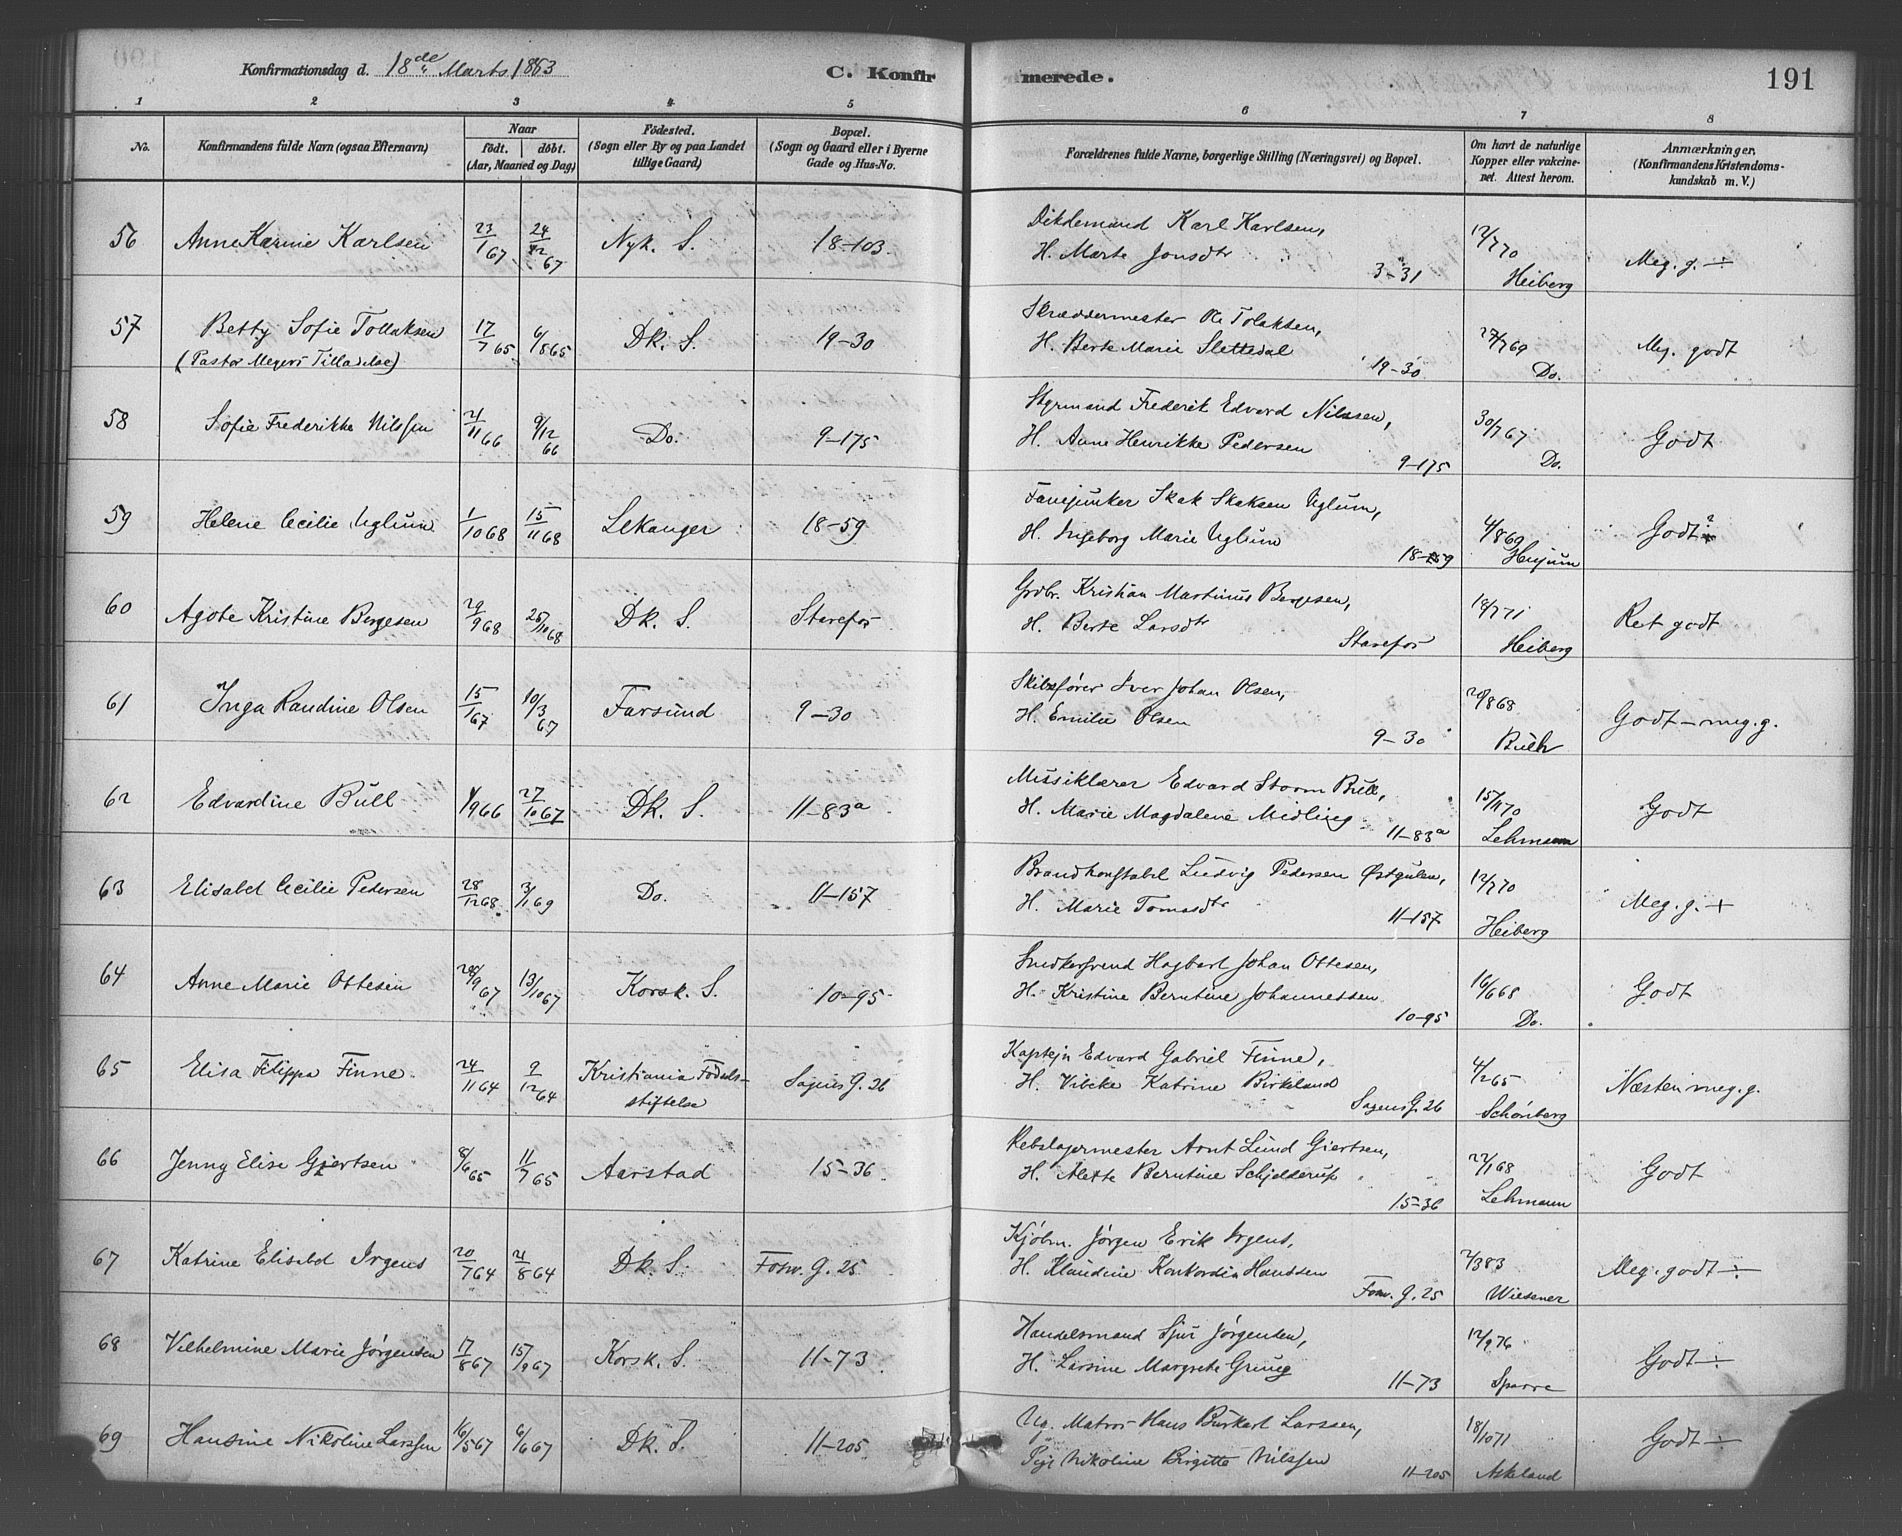 Konfirmationsdag d. 18de Marts 1883
C. Konfirmerede.
191
1 2 3 4 5 6 7 8
No.
Konfirmandens fulde Navn (ogsaa Efternavn)
Naar
født. døbt.
(Aar, Maaned og Dag)
Fødested.
(Sogn eller By og paa Landet
tillige Gaard)
Bopæl.
(Sogn og Gaard eller i Byerne
Gade og Hus-No.
Forældrenes fulde Navne, borgerlige Stilling (Næringsvei) og Bopæl.
Om havt de naturlige
Kopper eller vakcine-
net. Attest herom.
Anmærkninger,
(Konfirmandens Kristendoms-
kundskab m. V.)
56 Anne Karine Karlsen 23/1 67 24/12 67 Nyk. S. 18-103 Karl Karlsen, 12/7 70
H. Marte Jonsdtr 3-31 Heiberg Meg. g. ÷
57 Betty Sofie Tollaksen 17/7 65 6/8 65 Dk. S. 19-30 Skræddermester Ole Tolaksen, 27/7 69 Mg. godt
(Pastor Meyers Tilladelse) H. Berte Marie Slettedal 19-30 Do.
58 Sofie Frederikke Nilssen 21/11 66 9/12 66 Do. 9-175 Styrmand Frederik Edvard Nilssen, 30/7 67 Godt
H. Anne Henrikke Pedersen 9-175 Do.
59 Helene Cecilie Uglum 1/10 68 15/11 68 Lekanger 18-59 Fanejunker Skak Skaksen Uglum, 4/8 69 Godt
H. Ingeborg Marie Uglum 18-59
60 Agote Kristine Børgesen 29/9 68 25/10 68 Dk. S. Starefos Grdbr. Kristian Martinus Børgesen, 18/7 71 Ret godt
H. Berte Larsdtr Starefos Heiberg
61 Inga Randine Olsen 15/1 67 10/3 67 Farsund 9-30 Skibsfører Iver Johan Olsen, 20/8 68 Godt – meg. g.
H. Emilie Olsen 9-30
62 Edvardine Bull 1/9 66 27/10 67 Dk. S. 11-83a Musiklærer Edvard Storm Bull, 15/11 70 Godt
H. Marie Magdalene Midling 11-83a Lehmann
63 Elisabet Cecilie Pedersen 28/12 68 3/1 69 Do. 11-157 Brandkonstabel Ludvig Pedersen Østgulen, 12/7 70 Meg. g. +
H. Marie Tomasdtr 11-157 Heiberg
64 Anne Marie Ottesen 28/9 67 13/10 67 Korsk. S. 10-95 Snedkersvend Hagbart Johan Ottesen, 16/6 68 Godt
H. Kristine Berntine Johannessen 10-95 Do.
65 Elisa Filippa Finne 24/11 64 2/12 64 Kristiania Fødsels- Sagens G. 26 Kaptejn Edvard Gabriel Finne, 4/2 65 Næsten meg. g.
stiftelse H. Vibeke Katrine Birkeland Sagens G. 26 Schönberg
66 Jenny Elise Gjertsen 8/6 65 11/7 65 Aarstad 15-36 Rebslagermester Arnt Lund Giertsen, 22/1 68 Godt
H. Alette Berntine Schjelderup 15-36 Lehmann
67 Katrine Elisabet Irgens 20/7 64 21/8 64 Dk. S. Fosw. G. 25 Kjøbm. Jørgen Erik Irgens, 2/3 83 Meg. godt ÷
H. Klaudine Konkordia Hanssen Fosw. G. 25 Wiesener
68 Vilhelmine Marie Jørgensen 17/8 67 15/9 67 Korsk. S. 11-73 Handelsmand Sjur Jørgensen, 12/9 76 Godt ÷
H. Larsine Margrete Grung 11-73 Sparre
69 Hansine Nikoline Larssen 16/5 67 6/6 67 Dk. S. 11-205 Ug. Matros Hans Burkart Larssen, 18/10 71 Godt ÷
Pige Nikoline Birgitte Nilssen 11-205 Askeland